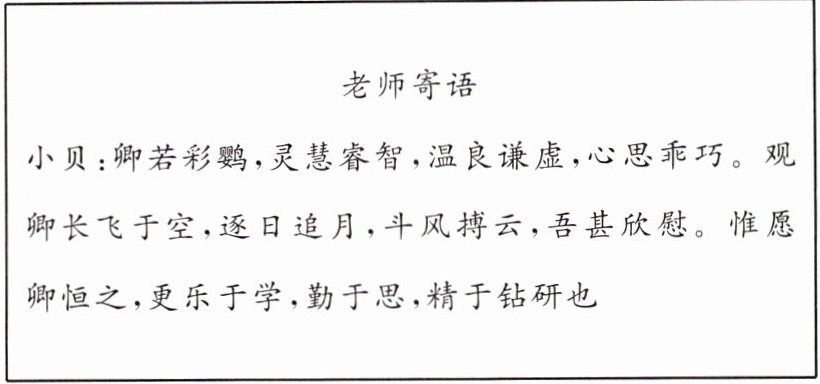 老师寄语
小贝:卿若彩鹦,灵慧睿智,温良谦虚,心思乖巧。观
卿长飞于空,逐日追月,斗风搏云,吾甚欣慰。惟愿
卿恒之,更乐于学,勤于思,精于钻研也